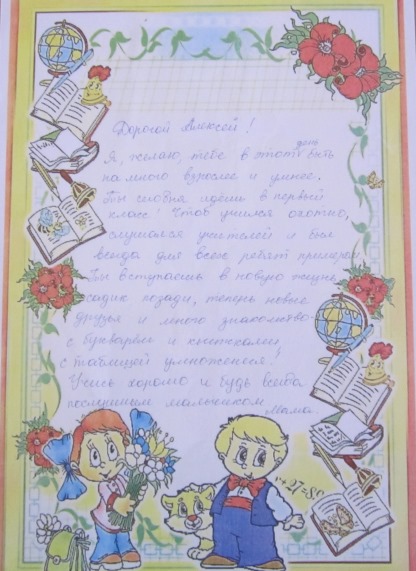 Дорогой Алексей!
Я, желаю, тебе в этот день быть
на много взрослее и умнее.
Ты сегодня идёшь в первый
класс! Чтоб учился охотно,
слушался учителей и был
всегда для всех ребят примером.
Ты вступаешь в новую жизнь,
садик позади, теперь новые
друзья и много знакомство
с букварём и книжками
с таблицей умноженья!
Учись хорошо и будь всегда
послушным мальчиком
Мама.